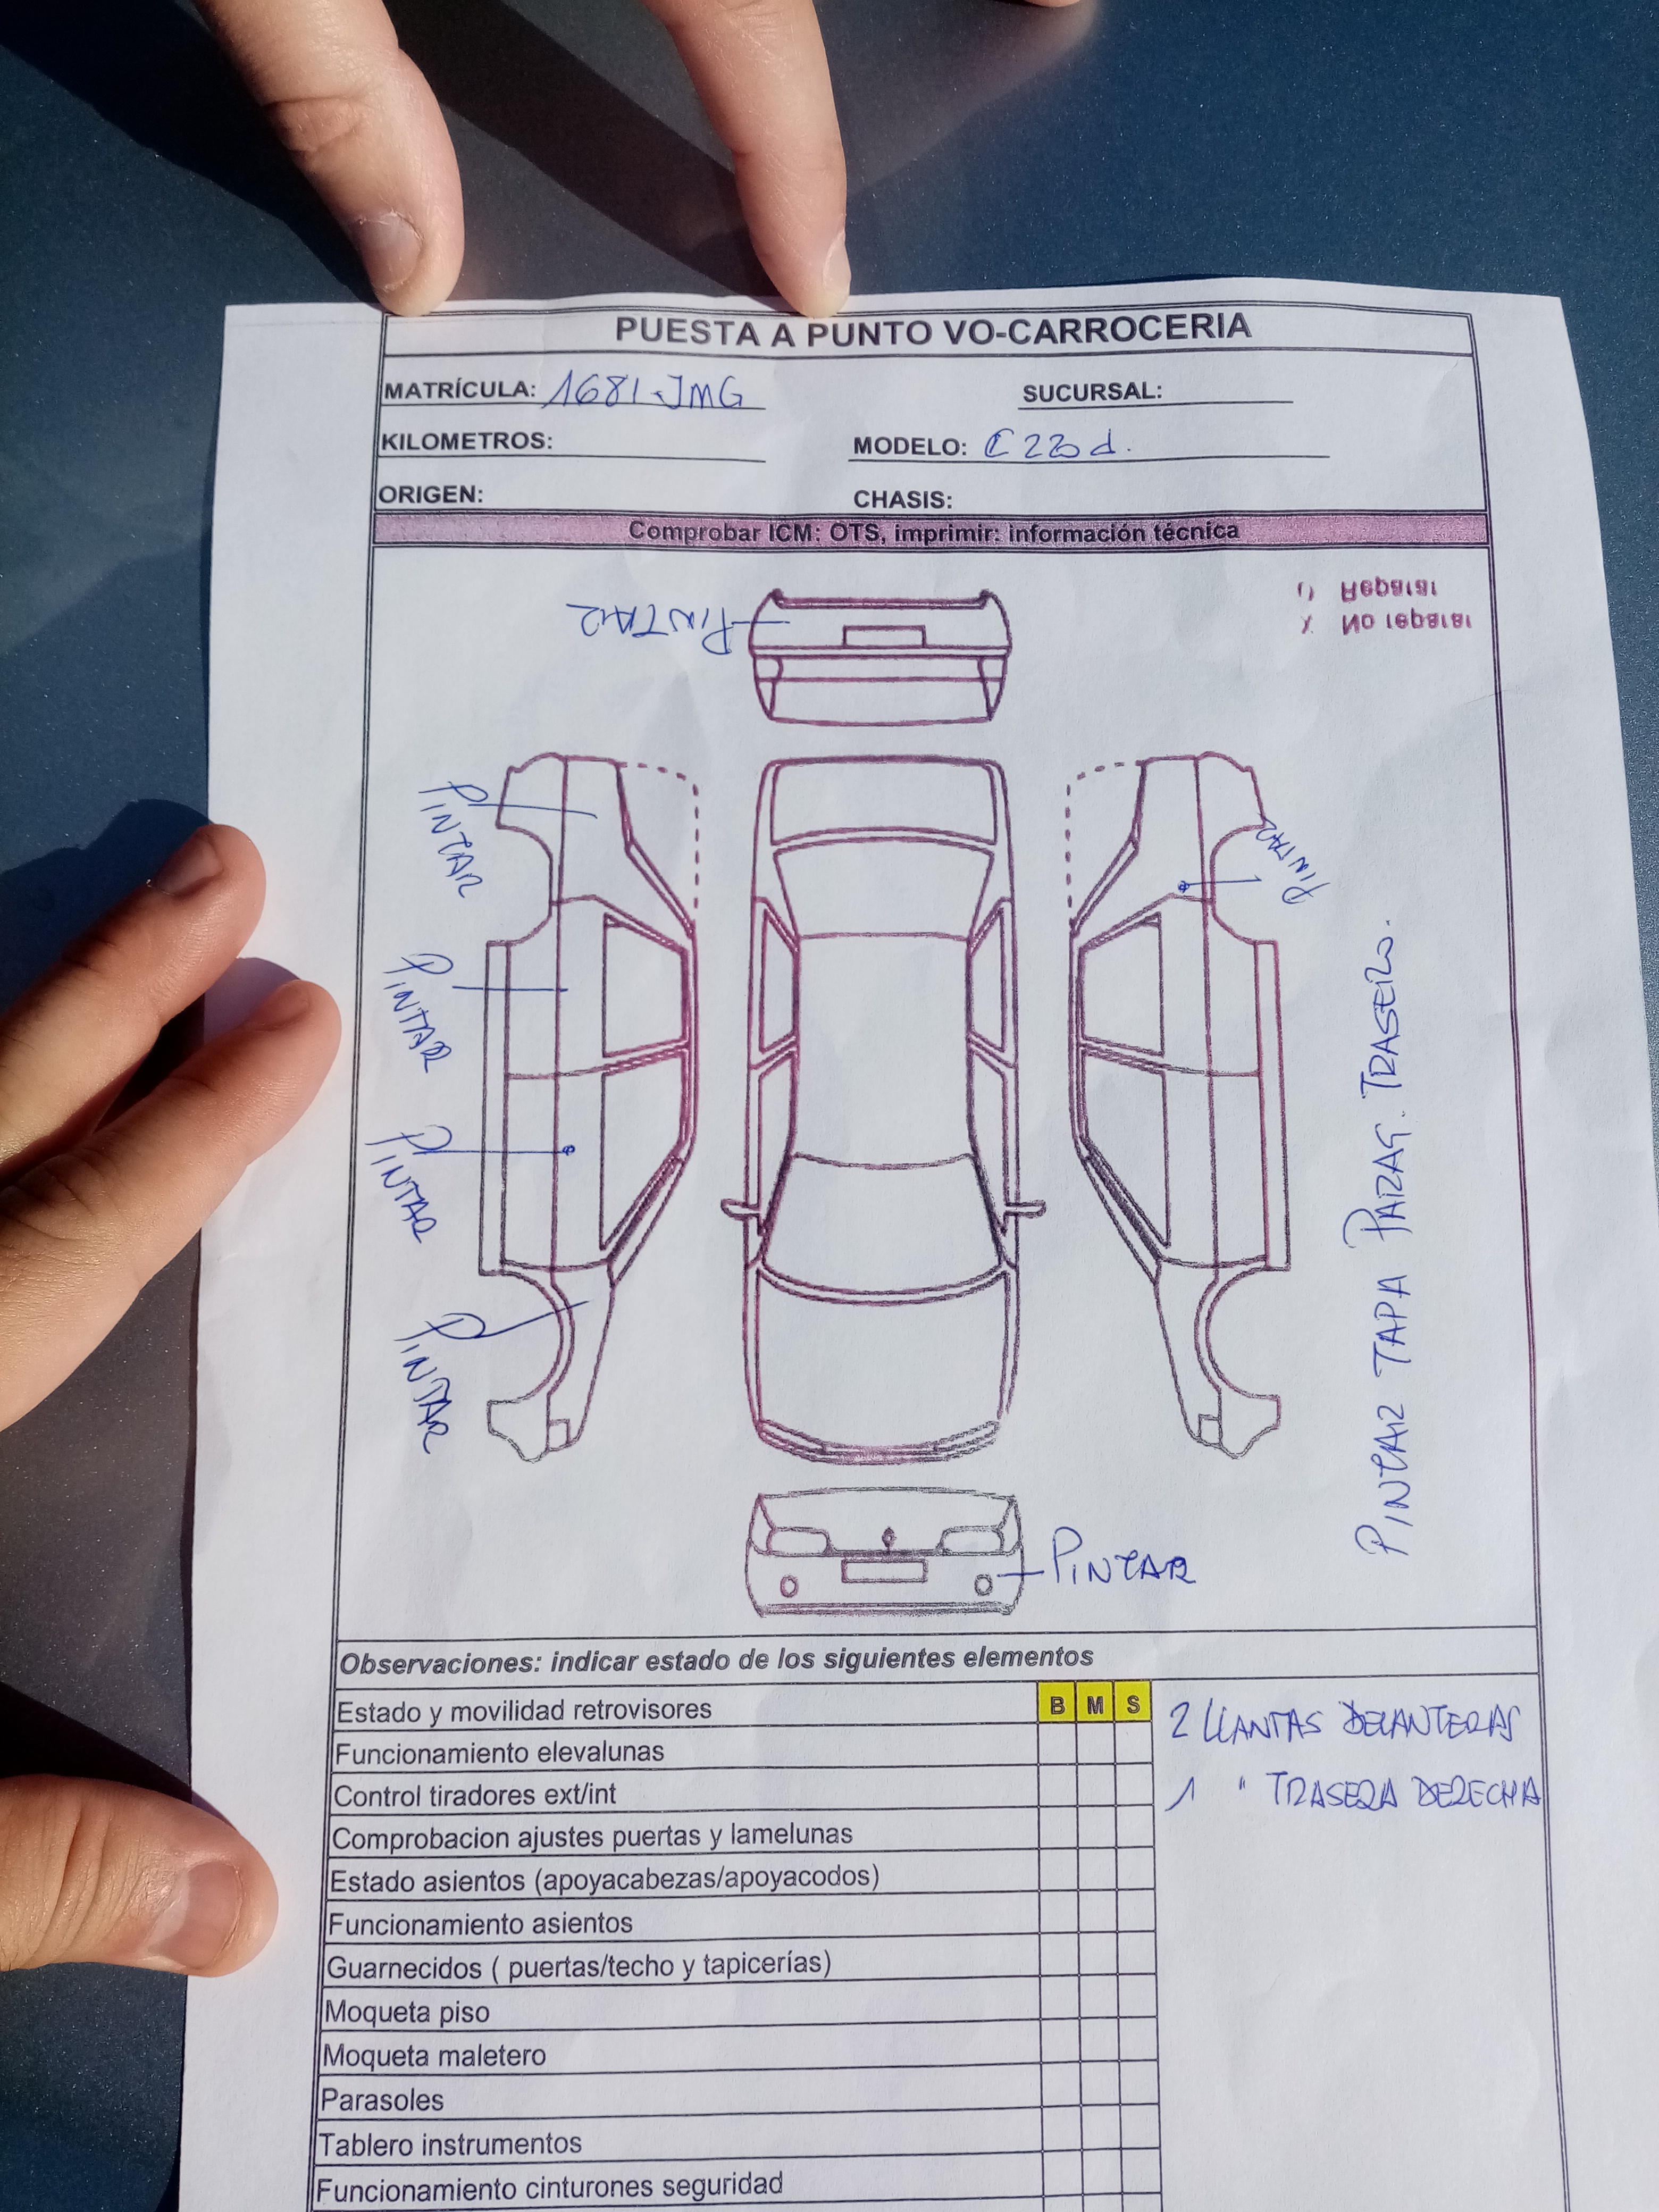 PUESTA A PUNTO VO-CARROCERIA
MATRÍCULA: 1681-JMG
SUCURSAL:
KILOMETROS:
MODELO: C 220 d.
ORIGEN:
CHASIS:
Comprobar ICM: OTS, imprimir: información técnica
() Reparar
X No reparar
PINTAR
PINTAR
PINTAR
PINTAR
PINTAR
PINTAR
PINTAR TAPA PARAG. TRASERO.
PINTAR
Observaciones: indicar estado de los siguientes elementos
Estado y movilidad retrovisores B M S
2 LLANTAS DELANTERAS
Funcionamiento elevalunas
Control tiradores ext/int
1 " TRASERA DERECHA
Comprobacion ajustes puertas y lamelunas
Estado asientos (apoyacabezas/apoyacodos)
Funcionamiento asientos
Guarnecidos ( puertas/techo y tapicerías)
Moqueta piso
Moqueta maletero
Parasoles
Tablero instrumentos
Funcionamiento cinturones seguridad